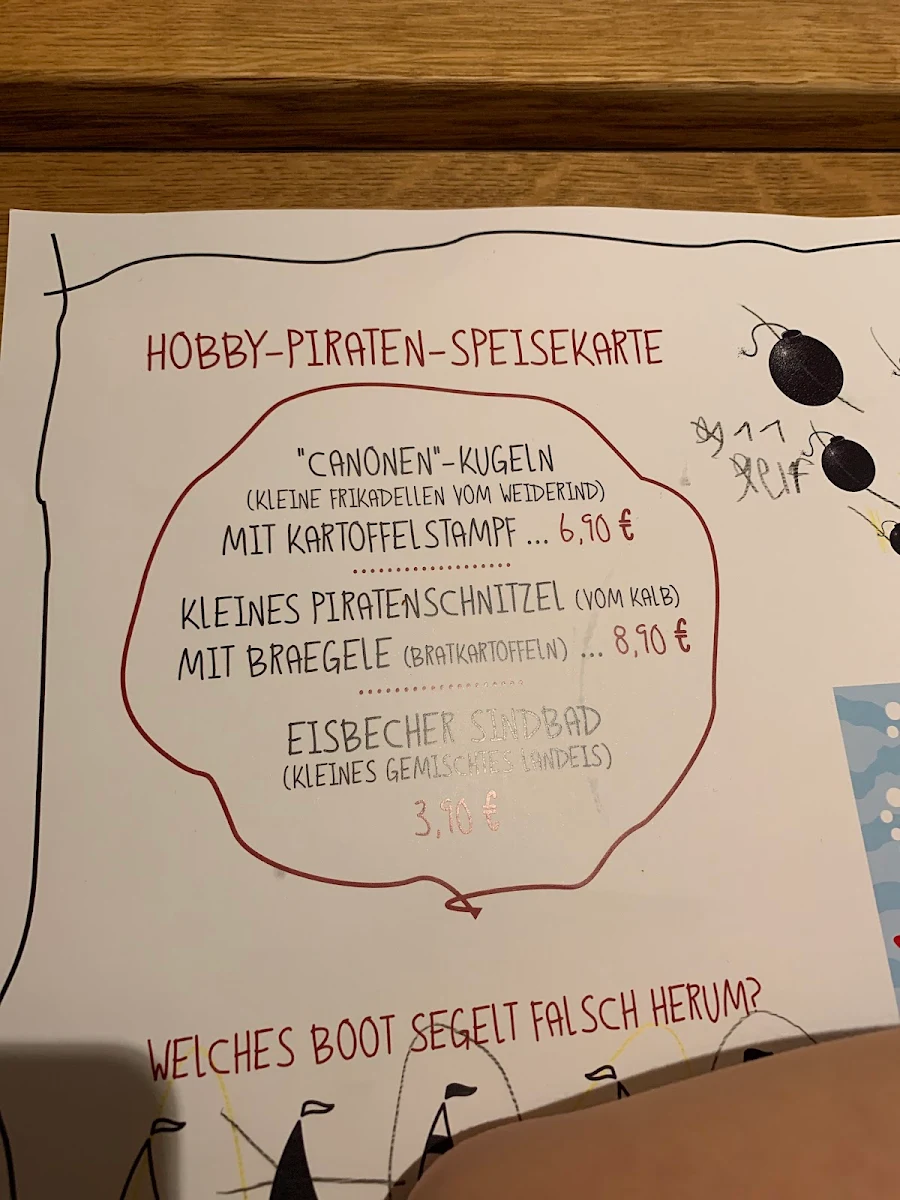 HOBBY-PIRATEN-SPEISEKARTE
"CANONEN"-KUGELN
(KLEINE FRIKADELLEN VOM WEIDERIND)
MIT KARTOFFELSTAMPF ... 6,90 €
KLEINES PIRATENSCHNITZEL (VOM KALB)
MIT BRAEGELE (BRATKARTOFFELN) ... 8,90 €
EISBECHER SINDBAD
(KLEINES GEMISCHTES LANDEIS)
3,90 €
WELCHES BOOT SEGELT FALSCH HERUM?